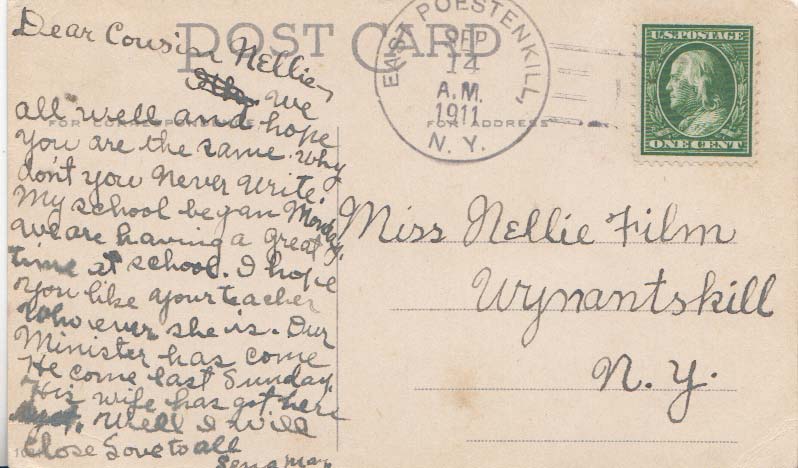 POST CARD
Dear Cousin Nellie
We
all well and hope
you are the same. Why
don't you never write.
My school began Monday.
we are having a great
time at school. I hope
you like your teacher
who ever she is. Our
Minister has come
He come last Sunday.
His wife has got here
Well I will
close Love to all
FOR CORRESPONDENCE
FOR ADDRESS
EAST POESTENKILL,
SEP
14
A.M.
1911
N.Y.
U.S. POSTAGE
ONE CENT
Miss Nellie Film
Wynantskill
N.Y.